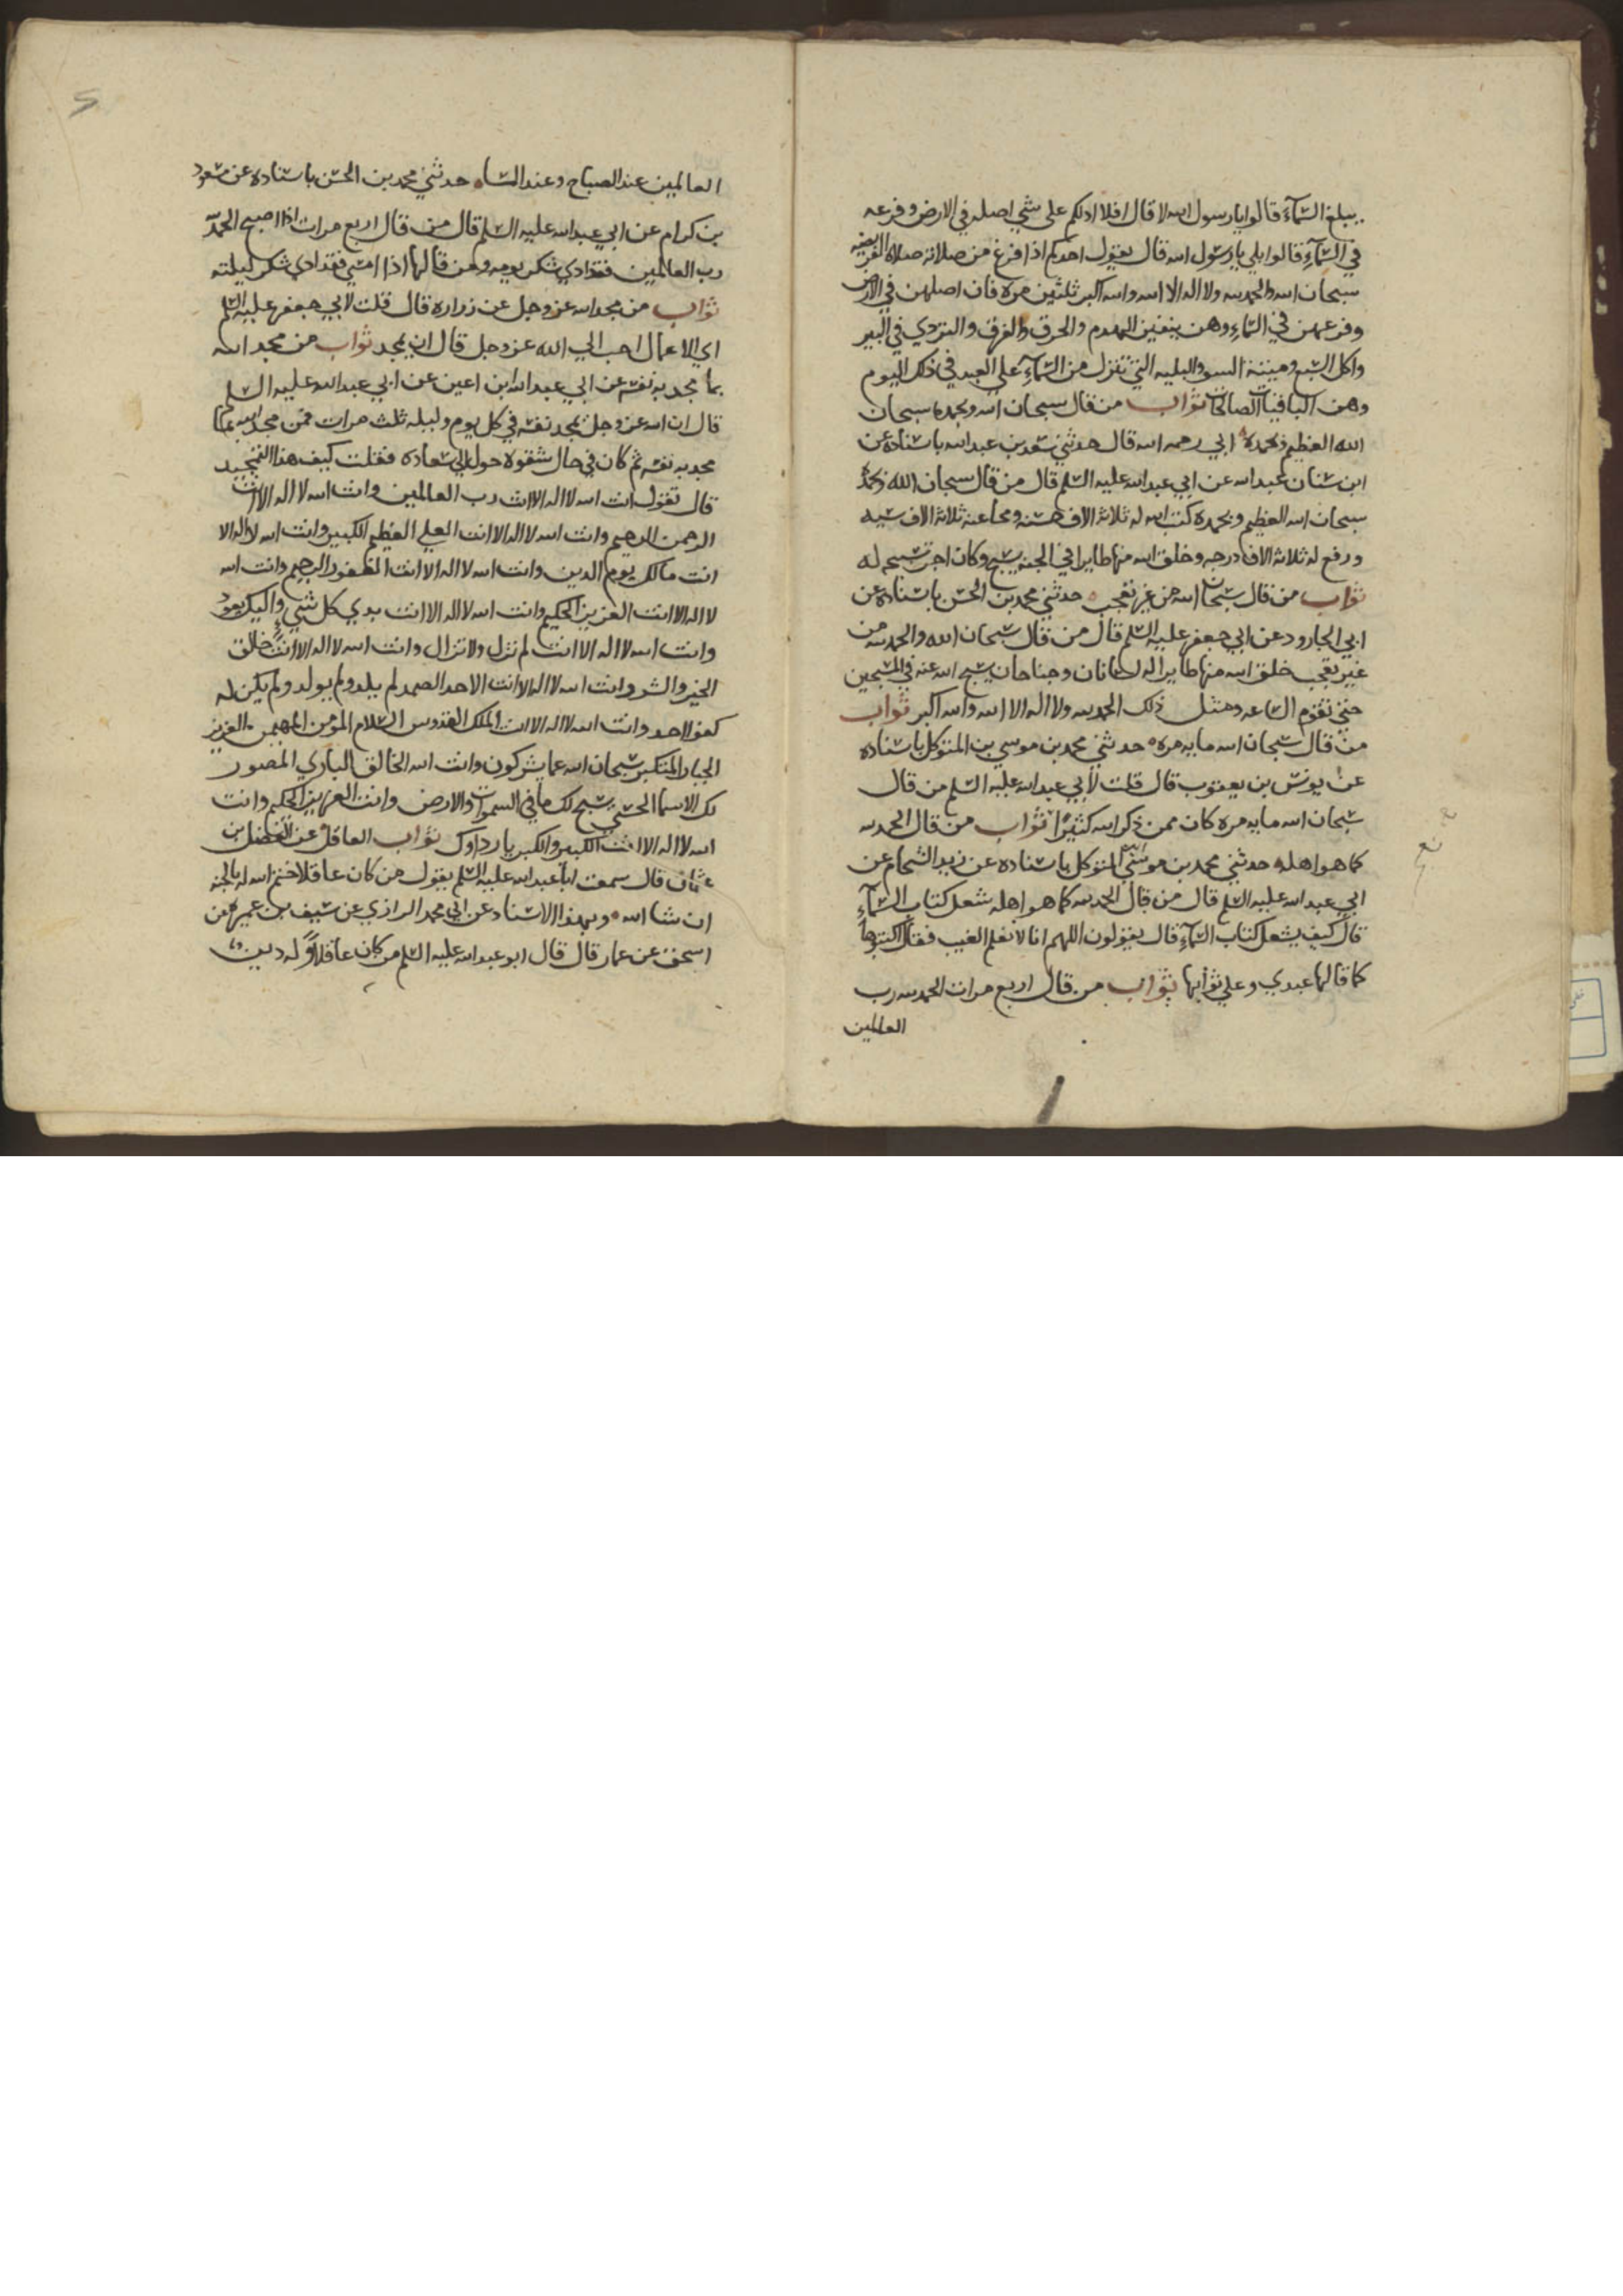 يبلغ السمآء قالوا يا رسول الله لا قال افلا ادلكم على شي اصله في الارض وفرعه
في السمآء قالوا بلي يا رسول الله قال يقول احدكم اذا فرغ من صلاته صلاة الفريضه
سبحان الله والحمد لله ولا اله الا الله والله اكبر ثلثين مرة فان اصلهن في الارض
وفرعهن في السماء وهن ينفين الهدم والحرق والغرق والتردي في البير
واكل السبع وميتة السو والبليه التي تنزل من السمآء علي العبد في ذلك اليوم
وهن الباقيات الصالحات ثواب من قال سبحان الله وبحمده سبحان
الله العظيم وبحمده ابي رحمه الله قال حدثني سعد بن عبد الله باسناده عن
ابن سنان عبد الله عن ابي عبد الله عليه السلم قال من قال سبحان الله وبحمده
سبحان الله العظيم وبحمده كتب الله له ثلاثة الاف حسنه ومحا عنه ثلاثة الاف سيه
ورفع له ثلاثة الاف درجه وخلق الله منها طايرا في الجنه يسبح وكان اجر تسبيحه له
ثواب من قال سبحان الله من غير تعجب حدثني محمد بن الحسن باسناده عن
ابي الجارود عن ابي جعفر عليه السلم قال من قال سبحان الله والحمد لله من
غير تعجب خلق الله منها طايرا له لسانان وجناحان يسبح الله عنه في المسبحين
حتي تقوم الساعه ومثل ذلك الحمد لله ولا اله الا الله والله اكبر ثواب
من قال سبحان الله مايه مره حدثني محمد بن موسي بن المتوكل باسناده
عن يونس بن يعقوب قال قلت لابي عبد الله عليه السلم من قال
سبحان الله مايه مره كان ممن ذكر الله كثيرا ثواب من قال الحمد لله
كما هو اهله حدثني محمد بن موسي ابن المتوكل باسناده عن زيد الشحام عن
ابي عبد الله عليه السلم قال من قال الحمد لله كما هو اهله شغل كتاب السمآء
قال كيف يشغل كتاب السمآء قال يقولون اللهم انا لا نعلم الغيب فقال اكتبوها
كما قالها عبدي وعلي ثوابها ثواب من قال اربع مرات الحمد لله رب
العالمين
العالمين عند الصباح وعند المساء حدثني محمد بن الحسن باسناده عن مسعود
بن كرام عن ابي عبد الله عليه السلم قال من قال اربع مرات اذا اصبح الحمد لله
رب العالمين فقد ادي شكر يومه ومن قالها اذا امسي فقد ادي شكر ليلته
ثواب من مجد الله عز وجل عن زراره قال قلت لابي جعفر عليه السلم
اي الاعمال احب الي الله عز وجل قال ان يمجد ثواب من مجد الله
بما مجد به نفسه عن ابي عبد الله ابن اعين عن ابي عبد الله عليه السلم
قال ان الله عز وجل يمجد نفسه في كل يوم وليله ثلث مرات فمن مجد الله بما
مجد به نفسه ثم كان في حال شقوة حول الي سعاده فقلت كيف هذا التمجيد
قال تقول انت الله لا اله الا انت رب العالمين وانت الله لا اله الا انت
الرحمن الرحيم وانت الله لا اله الا انت العلي العظيم الكبير وانت الله لا اله الا
انت مالك يوم الدين وانت الله لا اله الا انت الغفور الرحيم وانت الله
لا اله الا انت العزيز الحكيم وانت الله لا اله الا انت بدي كل شي واليك يعود
وانت الله لا اله الا انت لم تزل ولا تزال وانت الله لا اله الا انت خالق
الخير والشر وانت الله لا اله الا انت الاحد الصمد لم يلد ولم يولد ولم يكن له
كفوا احد وانت الله لا اله الا انت الملك القدوس السلام المؤمن المهيمن العزيز
الجبار المتكبر سبحان الله عما يشركون وانت الله الخالق الباري المصور
لك الاسما الحسني يسبح لك ما في السموات والارض وانت العزيز الحكيم وانت
الله لا اله الا انت الكبير والكبريا رداوك ثواب العاقل عن الفضل بن
عثمان قال سمعت ابا عبد الله عليه السلم يقول من كان عاقلا ختم الله له بالجنه
ان شا الله وبهذا الاسناد عن ابي محمد الرازي عن سيف بن عميره عن
اسحق عن عمار قال قال ابو عبد الله عليه السلم من كان عاقلا له دين